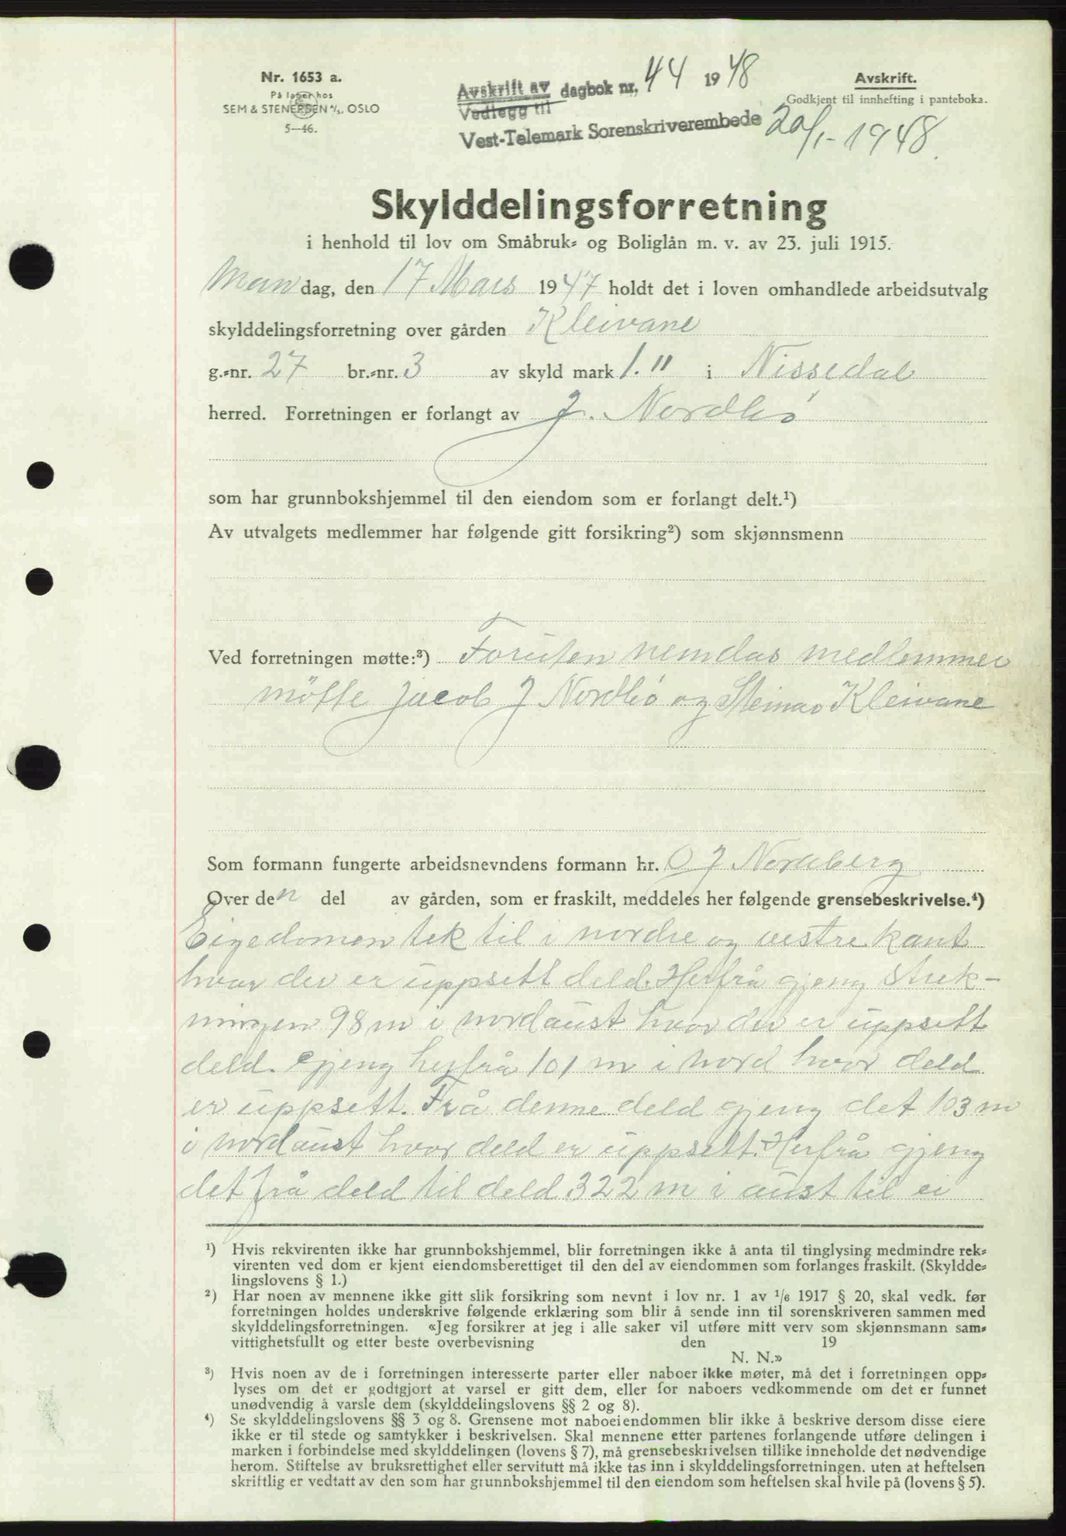 Nr. 1653 a.
På lager hos
SEM & STENERSEN A/S. OSLO
5—46.
Avskrift av dagbok nr. 44 1948
Vedlegg til
Vest-Telemark Sorenskriverembede
Avskrift.
Godkjent til innhefting i panteboka.
20/1-1948.
Skylddelingsforretning
i henhold til lov om Småbruk- og Boliglån m. v. av 23. juli 1915.
Mandag, den 17 Mars 1947 holdt det i loven omhandlede arbeidsutvalg
skylddelingsforretning over gården Kleivane
g.-nr. 27 br.-nr. 3 av skyld mark 1." i Nissedal
herred. Forretningen er forlangt av J. Nordbø
som har grunnbokshjemmel til den eiendom som er forlangt delt.¹)
Av utvalgets medlemmer har følgende gitt forsikring²) som skjønnsmenn
Ved forretningen møtte:³) Foruten nemdas medlemmer
møtte Jacob J Nordbø og Steinar Kleivane
Som formann fungerte arbeidsnevndens formann hr. O J Nordberg
Over den del av gården, som er fraskilt, meddeles her følgende grensebeskrivelse.⁴)
Eigedomen tek til i nordre og vestre kant
hvor der er uppsett deld. Herfrå gjeng strek-
ningen 98 m i nordaust hvor der er uppsett
deld. gjeng herfrå 101 m i nord hvor deld
er uppsett. Frå denne deld gjeng det 103 m
i nordaust hvor deld er uppsett. Herfrå gjeng
det frå deld til deld 322 m i aust til ei
¹) Hvis rekvirenten ikke har grunnbokshjemmel, blir forretningen ikke å anta til tinglysing medmindre rek-
virenten ved dom er kjent eiendomsberettiget til den del av eiendommen som forlanges fraskilt. (Skyldde-
lingslovens § 1.)
²) Har noen av mennene ikke gitt slik forsikring som nevnt i lov nr. 1 av 1/6 1917 § 20, skal vedk. før
forretningen holdes underskrive følgende erklæring som blir å sende inn til sorenskriveren sammen med
skylddelingsforretningen. «Jeg forsikrer at jeg i alle saker vil utføre mitt verv som skjønnsmann sam-
vittighetsfullt og etter beste overbevisning den 19
N. N.»
³) Hvis noen av de i forretningen interesserte parter eller naboer ikke møter, må det i forretningen opp-
lyses om det er godtgjort at varsel er gitt dem, eller for naboers vedkommende om det er funnet
unødvendig å varsle dem (skylddelingslovens §§ 2 og 8).
⁴) Se skylddelingslovens §§ 3 og 8. Grensene mot naboeiendommen blir ikke å beskrive dersom disse eiere
ikke er til stede og samtykker i beskrivelsen. Skal mennene etter partenes forlangende utføre delingen i
marken i forbindelse med skylddelingen (lovens § 7), må grensebeskrivelsen tillike inneholde det nødvendige
herom. Stiftelse av bruksrettighet eller servitutt må ikke tas inn i skylddelingsforretningen. uten at heftelsen
skriftlig er vedtatt av den som har grunnbokshjemmel til den eiendom som heftelsen skal hvile på (lovens § 5).